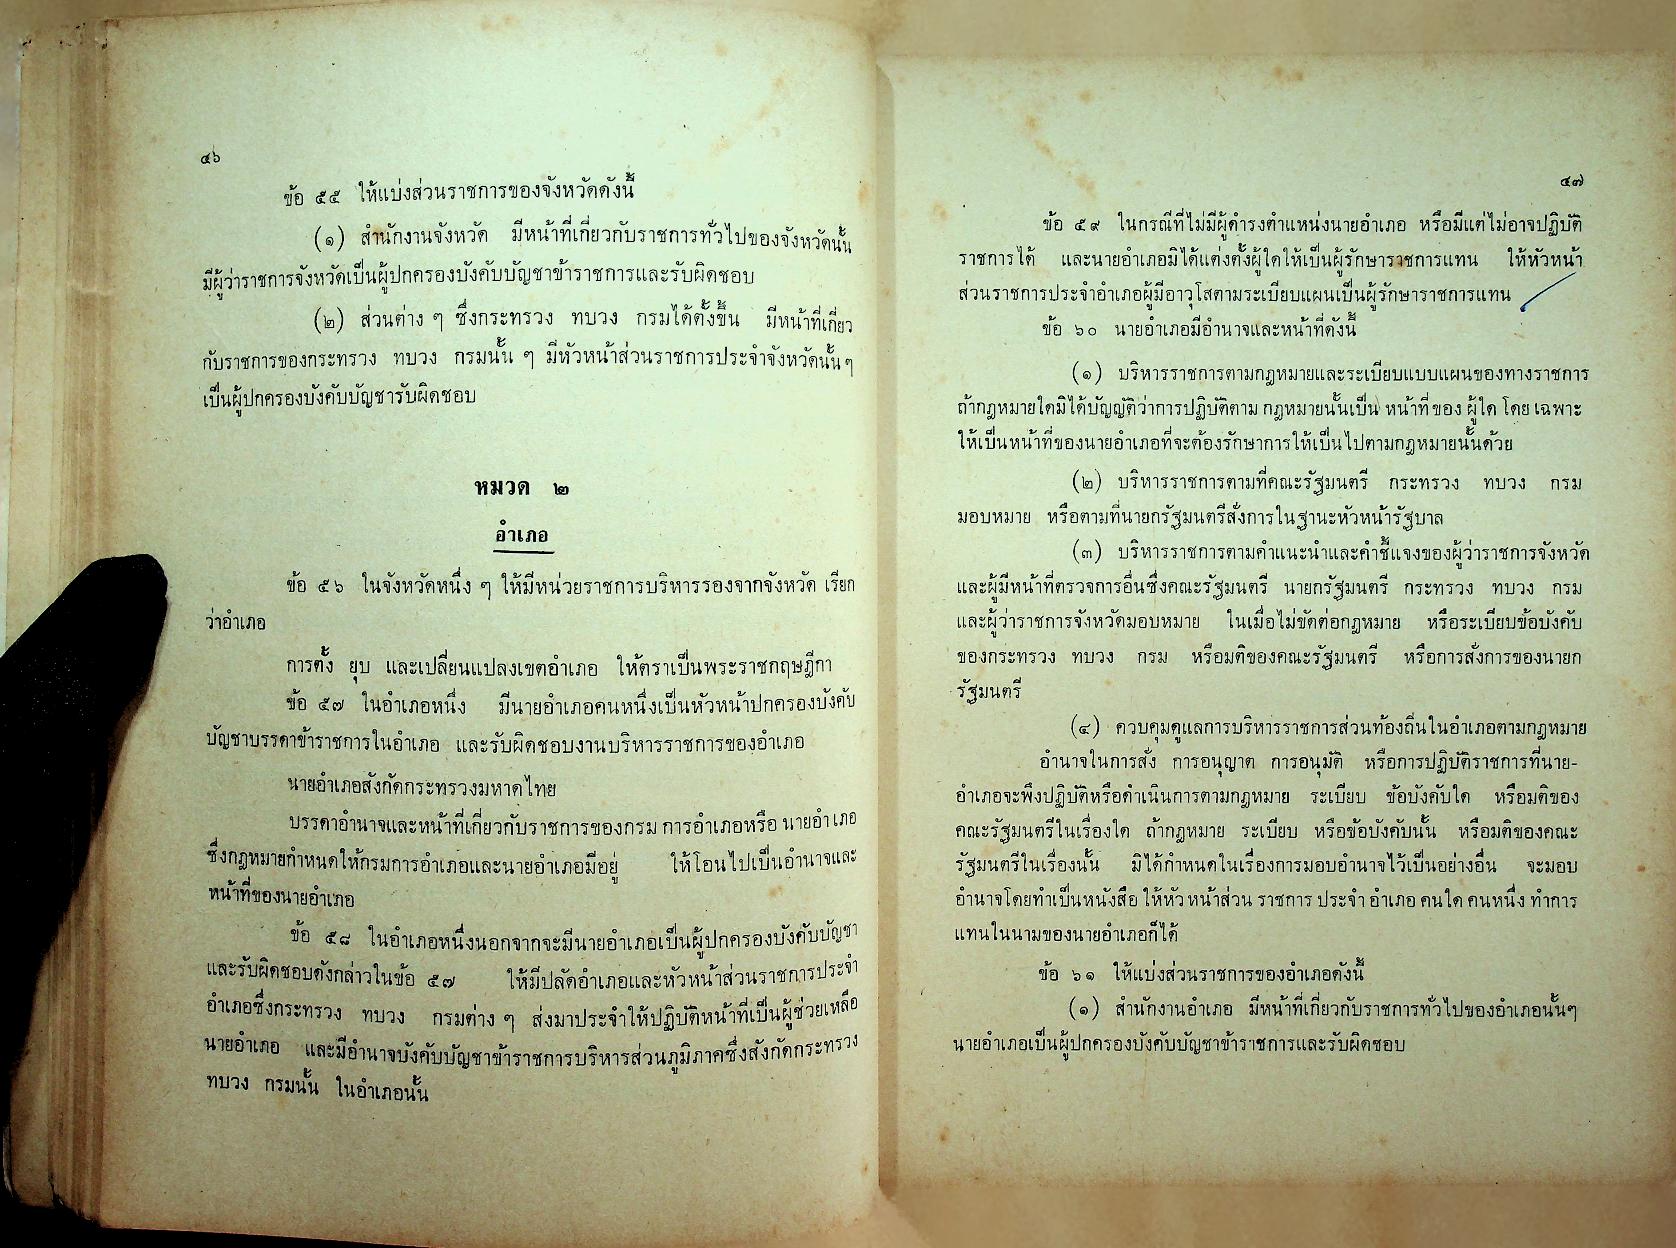 ๔๖
ข้อ ๕๕ ให้แบ่งส่วนราชการของจังหวัดดังนี้
(๑) สำนักงานจังหวัด มีหน้าที่เกี่ยวกับราชการทั่วไปของจังหวัดนั้น
มีผู้ว่าราชการจังหวัดเป็นผู้ปกครองบังคับบัญชาข้าราชการและรับผิดชอบ
(๒) ส่วนต่าง ๆ ซึ่งกระทรวง ทบวง กรมได้ตั้งขึ้น มีหน้าที่เกี่ยว
กับราชการของกระทรวง ทบวง กรมนั้น ๆ มีหัวหน้าส่วนราชการประจำจังหวัดนั้น ๆ
เป็นผู้ปกครองบังคับบัญชารับผิดชอบ
หมวด ๒
อำเภอ
ข้อ ๕๖ ในจังหวัดหนึ่ง ๆ ให้มีหน่วยราชการบริหารรองจากจังหวัด เรียก
ว่าอำเภอ
การตั้ง ยุบ และเปลี่ยนแปลงเขตอำเภอ ให้ตราเป็นพระราชกฤษฎีกา
ข้อ ๕๗ ในอำเภอหนึ่ง มีนายอำเภอคนหนึ่งเป็นหัวหน้าปกครองบังคับ
บัญชาบรรดาข้าราชการในอำเภอ และรับผิดชอบงานบริหารราชการของอำเภอ
นายอำเภอสังกัดกระทรวงมหาดไทย
บรรดาอำนาจและหน้าที่เกี่ยวกับราชการของกรม การอำเภอหรือ นายอำเภอ
ซึ่งกฎหมายกำหนดให้กรมการอำเภอและนายอำเภอมีอยู่ ให้โอนไปเป็นอำนาจและ
หน้าที่ของนายอำเภอ
ข้อ ๕๘ ในอำเภอหนึ่งนอกจากจะมีนายอำเภอเป็นผู้ปกครองบังคับบัญชา
และรับผิดชอบดังกล่าวในข้อ ๕๗ ให้มีปลัดอำเภอและหัวหน้าส่วนราชการประจำ
อำเภอซึ่งกระทรวง ทบวง กรมต่าง ๆ ส่งมาประจำให้ปฏิบัติหน้าที่เป็นผู้ช่วยเหลือ
นายอำเภอ และมีอำนาจบังคับบัญชาข้าราชการบริหารส่วนภูมิภาคซึ่งสังกัดกระทรวง
ทบวง กรมนั้น ในอำเภอนั้น
๔๗
ข้อ ๕๙ ในกรณีที่ไม่มีผู้ดำรงตำแหน่งนายอำเภอ หรือมีแต่ไม่อาจปฏิบัติ
ราชการได้ และนายอำเภอมิได้แต่งตั้งผู้ใดให้เป็นผู้รักษาราชการแทน ให้หัวหน้า
ส่วนราชการประจำอำเภอผู้มีอาวุโสตามระเบียบแผนเป็นผู้รักษาราชการแทน
ข้อ ๖๐ นายอำเภอมีอำนาจและหน้าที่ดังนี้
(๑) บริหารราชการตามกฎหมายและระเบียบแบบแผนของทางราชการ
ถ้ากฎหมายใดมิได้บัญญัติว่าการปฏิบัติตาม กฎหมายนั้นเป็น หน้าที่ของ ผู้ใด โดย เฉพาะ
ให้เป็นหน้าที่ของนายอำเภอที่จะต้องรักษาการให้เป็นไปตามกฎหมายนั้นด้วย
(๒) บริหารราชการตามที่คณะรัฐมนตรี กระทรวง ทบวง กรม
มอบหมาย หรือตามที่นายกรัฐมนตรีสั่งการในฐานะหัวหน้ารัฐบาล
(๓) บริหารราชการตามคำแนะนำและคำชี้แจงของผู้ว่าราชการจังหวัด
และผู้มีหน้าที่ตรวจการอื่นซึ่งคณะรัฐมนตรี นายกรัฐมนตรี กระทรวง ทบวง กรม
และผู้ว่าราชการจังหวัดมอบหมาย ในเมื่อไม่ขัดต่อกฎหมาย หรือระเบียบข้อบังคับ
ของกระทรวง ทบวง กรม หรือมติของคณะรัฐมนตรี หรือการสั่งการของนายก
รัฐมนตรี
(๔) ควบคุมดูแลการบริหารราชการส่วนท้องถิ่นในอำเภอตามกฎหมาย
อำนาจในการสั่ง การอนุญาต การอนุมัติ หรือการปฏิบัติราชการที่นาย-
อำเภอจะพึงปฏิบัติหรือดำเนินการตามกฎหมาย ระเบียบ ข้อบังคับใด หรือมติของ
คณะรัฐมนตรีในเรื่องใด ถ้ากฎหมาย ระเบียบ หรือข้อบังคับนั้น หรือมติของคณะ
รัฐมนตรีในเรื่องนั้น มิได้กำหนดในเรื่องการมอบอำนาจไว้เป็นอย่างอื่น จะมอบ
อำนาจโดยทำเป็นหนังสือ ให้หัว หน้าส่วน ราชการ ประจำ อำเภอ คนใด คนหนึ่ง ทำการ
แทนในนามของนายอำเภอก็ได้
ข้อ ๖๑ ให้แบ่งส่วนราชการของอำเภอดังนี้
(๑) สำนักงานอำเภอ มีหน้าที่เกี่ยวกับราชการทั่วไปของอำเภอนั้นๆ
นายอำเภอเป็นผู้ปกครองบังคับบัญชาข้าราชการและรับผิดชอบ